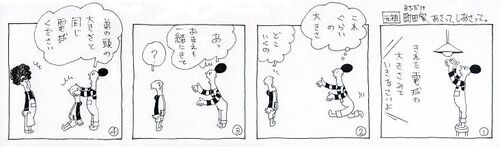 まちだけ
元祖 町田家 あさって。しあさって。
きれた電球の
大きさみて
いきなさいよ
①
これ
ぐらい
の
大きさ
どこ
いくの
②
あっ
おまえも
一緒にきて
?
③
弟の頭の
大きさと
同じ
電球
ください
④